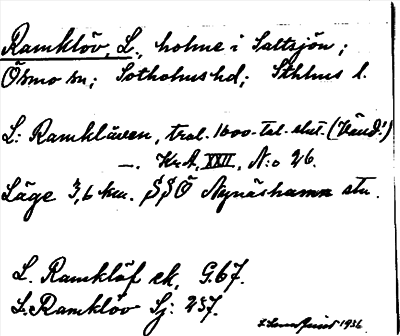 Ramklöv, L., holme i Saltsjön;
Ösmo sn; Sotholms hd; Sthlms l.
L: Ramklåwen, trol. 1600-tal. slut. (Vänd!)
—. Kr. A. XXII, N:o 26.
Läge 3,6 km. SSÖ Nynäshamn stn.
L. Ramklöf ek, G. 67.
L. Ramklöv Sj: 237.
1936